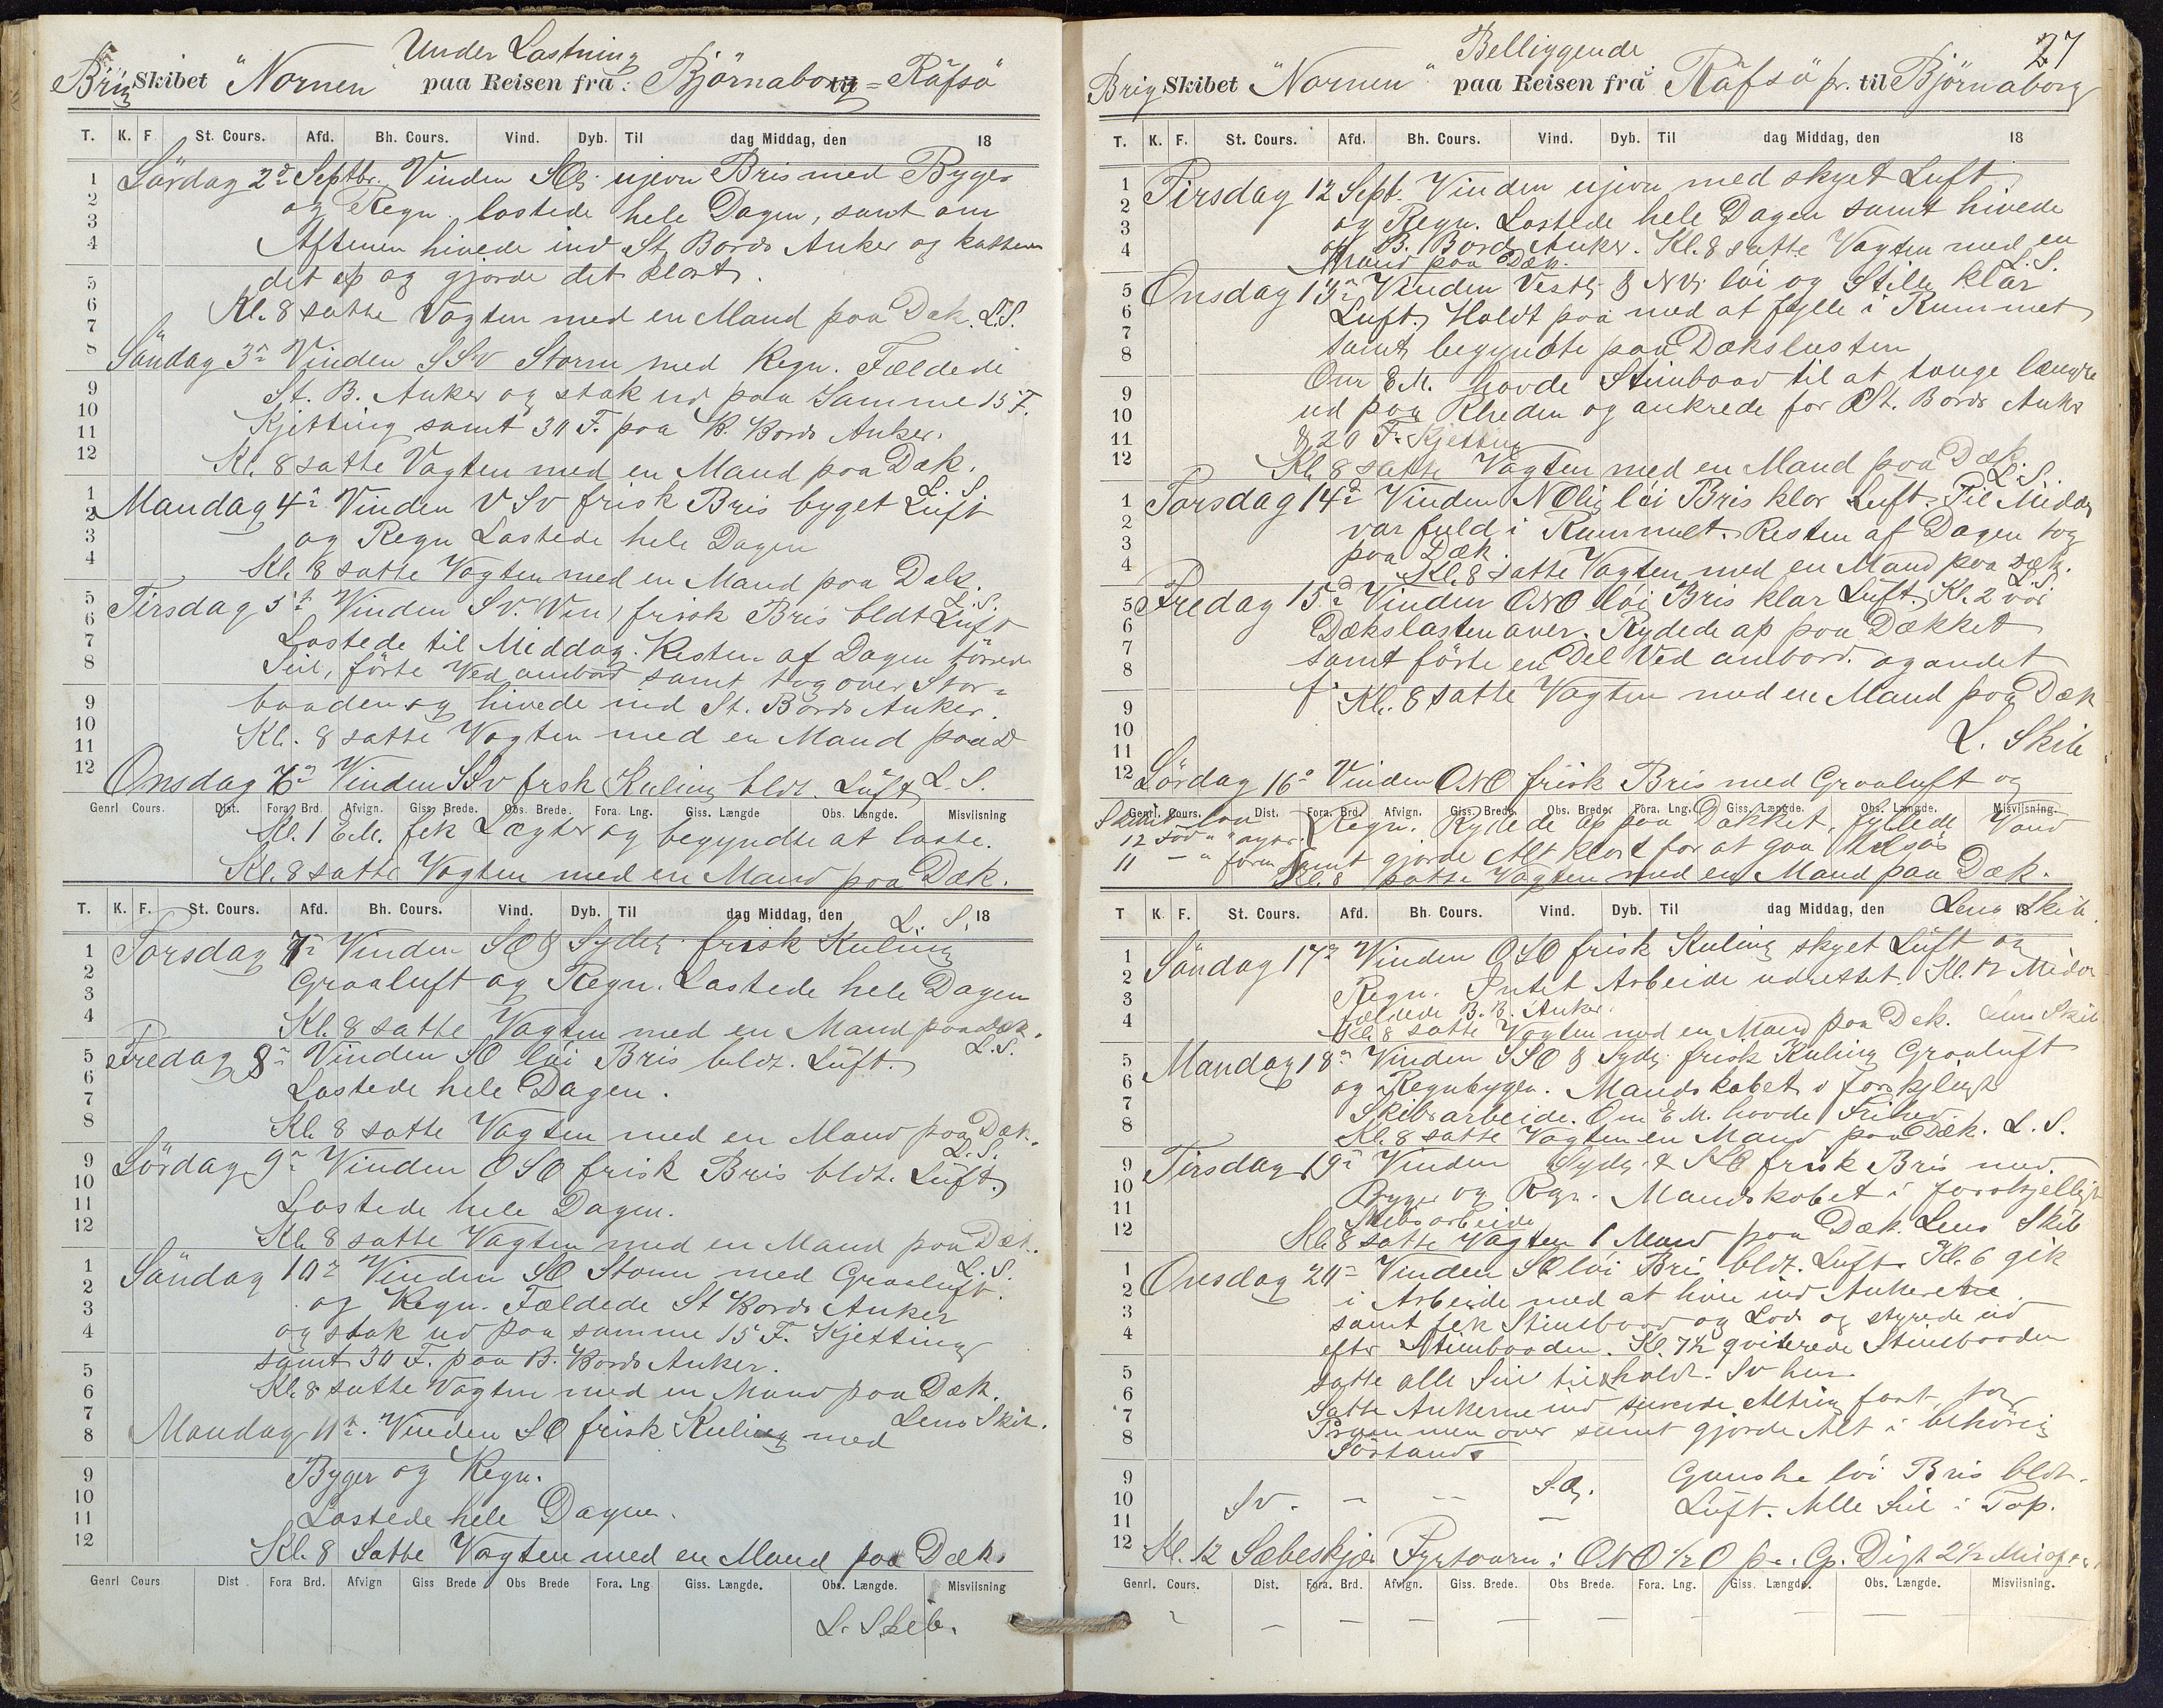 Under Lastning
Brig Skibet "Nornen" paa Reisen fra: Björnaborg = Räfsö
T. K. F. St. Cours. Afd. Bh. Cours. Vind. Dyb. Til dag Middag, den 18
Lördag 2d Septbr. Vinden SO. ujevn Bris med Byger
og Regn. lastede hele Dagen, samt om
Aftenen hivede ind St. Bords Anker og
det op og gjorde det klart.
Kl. 8 satte Vagten med en Mand paa Dæk. L.S.
Söndag 3d Vinden SSV Storm med Regn. Fældede
St. B. Anker og stak ud paa Samme 15 F.
Kjetting samt 30 F. paa B. Bords Anker.
Kl. 8 satte Vagten med en Mand paa Dæk.
L. S.
Mandag 4d Vinden VSV frisk Bris byget Luft
og Regn Lastede hele Dagen
Kl. 8 satte Vagten med en Mand paa Dæk.
L.S.
Tirsdag 5t Vinden SV. frisk Bris bldt Luft
Lastede til Middag. Resten af Dagen törrede
Seil, förte Ved ombord samt tog over Stor=
baaden og hivede ind St. Bords Anker.
Kl. 8 satte Vagten med en Mand paa D
Onsdag 6d Vinden SSV frsk Kuling bldt. Luft L. S.
Genrl Cours. Dist. Fora Brd. Afvign. Giss. Brede. Obs. Brede. Fora. Lng. Giss. Længde Obs. Længde. Misviisning
Kl. 1 E.M. fik Lægter og begyndte at laste.
Kl. 8 satte Vagten med en Mand paa Dæk.
T. K. F. St. Cours. Afd. Bh. Cours. Vind. Dyb. Til dag Middag, den L. S. 18
Torsdag 7d Vinden SO & Sydlig frisk Kuling
Graaluft og Regn. Lastede hele Dagen
Kl. 8 satte Vagten med en Mand paa Dæk.
L.S.
Fredag 8d Vinden SO löi Bris bldt. Luft.
Lastede hele Dagen.
Kl. 8 satte Vagten med en Mand paa Dæk.
L.S.
Lördag 9d Vinden OSO frisk Bris bldt. Luft.
Lastede hele Dagen.
Kl. 8 satte Vagten med en Mand paa Dæk.
L.S.
Söndag 10d Vinden SO Storm med Graaluft.
og Regn. Fældede St Bords Anker
og stak ud paa samme 15 F. Kjetting
samt 30 F. paa B. Bords Anker.
Kl. 8 satte Vagten med en Mand paa Dæk.
Lens Skib.
Mandag 11t. Vinden SO frisk Kuling med
Byger og Regn.
Lastede hele Dagen.
Kl. 8 Satte Vagten med en Mand paa Dæk.
Genrl Cours Dist Fora Brd. Afvign Giss Brede Obs Brede Fora. Lng Giss. Længde. Obs. Længde. Misviisning
L. Skib.
27
Belliggende
Brig Skibet "Nornen" paa Reisen fra Räfsö pr. til Björnaborg
T. K. F. St. Cours. Afd. Bh. Cours. Vind. Dyb. Til dag Middag, den 18
Tirsdag 12 Sept. Vinden ujevn med skyet Luft
og Regn. Lastede hele Dagen samt hivede
op B. Bords Anker. Kl. 8 satte Vagten med en
Mand paa Dæk. L.S.
Onsdag 13d Vinden Vestl. & NV. löi og Stille klar
Luft. Holdt paa med at fylle i Rummet
samt begyndte paa Dækslasten
Om E.M. havde Stimbaad til at tauge længre
ud paa Rheden og ankrede for St. Bords Anker
& 20 F. Kjetting
Kl. 8 satte Vagten med en Mand paa Dæk
L.S.
Torsdag 14d Vinden NOlig löi Bris klar Luft. Til Middag
var fuld i Rummet. Resten af Dagen tog
paa Dæk.
Kl. 8 satte Vagten med en Mand paa Dæk.
L.S.
Fredag 15d Vinden ONO löi Bris klar Luft. Kl. 2 var
Dækslasten over. Rydede op paa Dækket
samt förte en Del Ved ombord. og andet
Kl. 8 satte Vagten med en Mand paa Dæk
L. Skib
Lördag 16d Vinden ONO frisk Bris med Graaluft og
Genrl. Cours. Dist. Fora. Brd. Afvign. Giss. Brede. Obs. Brede. Fora. Lng. Giss. Længde. Obs. Længde. Misviisning.
Regn. Rydede op paa Dækket, fyllede Vand
12 Fod " " agter
11 — " forn samt gjorde Alt klart for at gaa tilsös
Kl. 8 satte Vagten med en Mand paa Dæk.
T K. F. St. Cours. Afd. Bh. Cours. Vind. Dyb. Til dag Middag, den 18 Lens Skib.
Söndag 17d Vinden OSO frisk Kuling skyet Luft og
Regn. Intet Arbeide udrettet. Kl. 12 Midd
fældede B. B. Anker.
Kl. 8 satte Vagten med en Mand paa Dæk. Lens Skib
Mandag 18d Vinden SSO & Sydl. frisk Kuling Graaluft
og Regnbyger. Mandskabet i forskjeligt
Skibsarbeide. Om E.M. havde Frihed.
Kl. 8 satte Vagten en Mand paa Dæk. L. S.
Tirsdag 19d Vinden Sydl. & SSO frisk Bris med
Byger og Regn. Mandskabet i forskjelligt
Skibsarbeide
Kl. 8 satte Vagten 1 Mand paa Dæk. Lens Skib
Onsdag 20d Vinden SO löi Bris bldt. Luft Kl. 6 gik
i Arbeide med at hive ind Ankerene.
samt fik Stimbaad og Lods og styrede ud
efter Stimbaaden. Kl. 7½ qviterede Stimbaaden
satte alle Seil tilholdt. SV hen
Satte Ankerne ind surrede Alting fast, tog
Prammen over samt gjorde Alt i behörig
Sörtand
SV. — — S.O. Ganske löi Bris bldt.
Luft. Alle Seil i Top.
Kl. 12 Sæbeskjær Fyrtaarn i ONO ½ O pr. Cp. Dist 2½ Mil
Genrl. Cours. Dist. Fora. Brd. Afvign. Giss. Brede. Obs Brede. Fora. Lng. Giss. Længde. Obs. Længde. Misviisning.